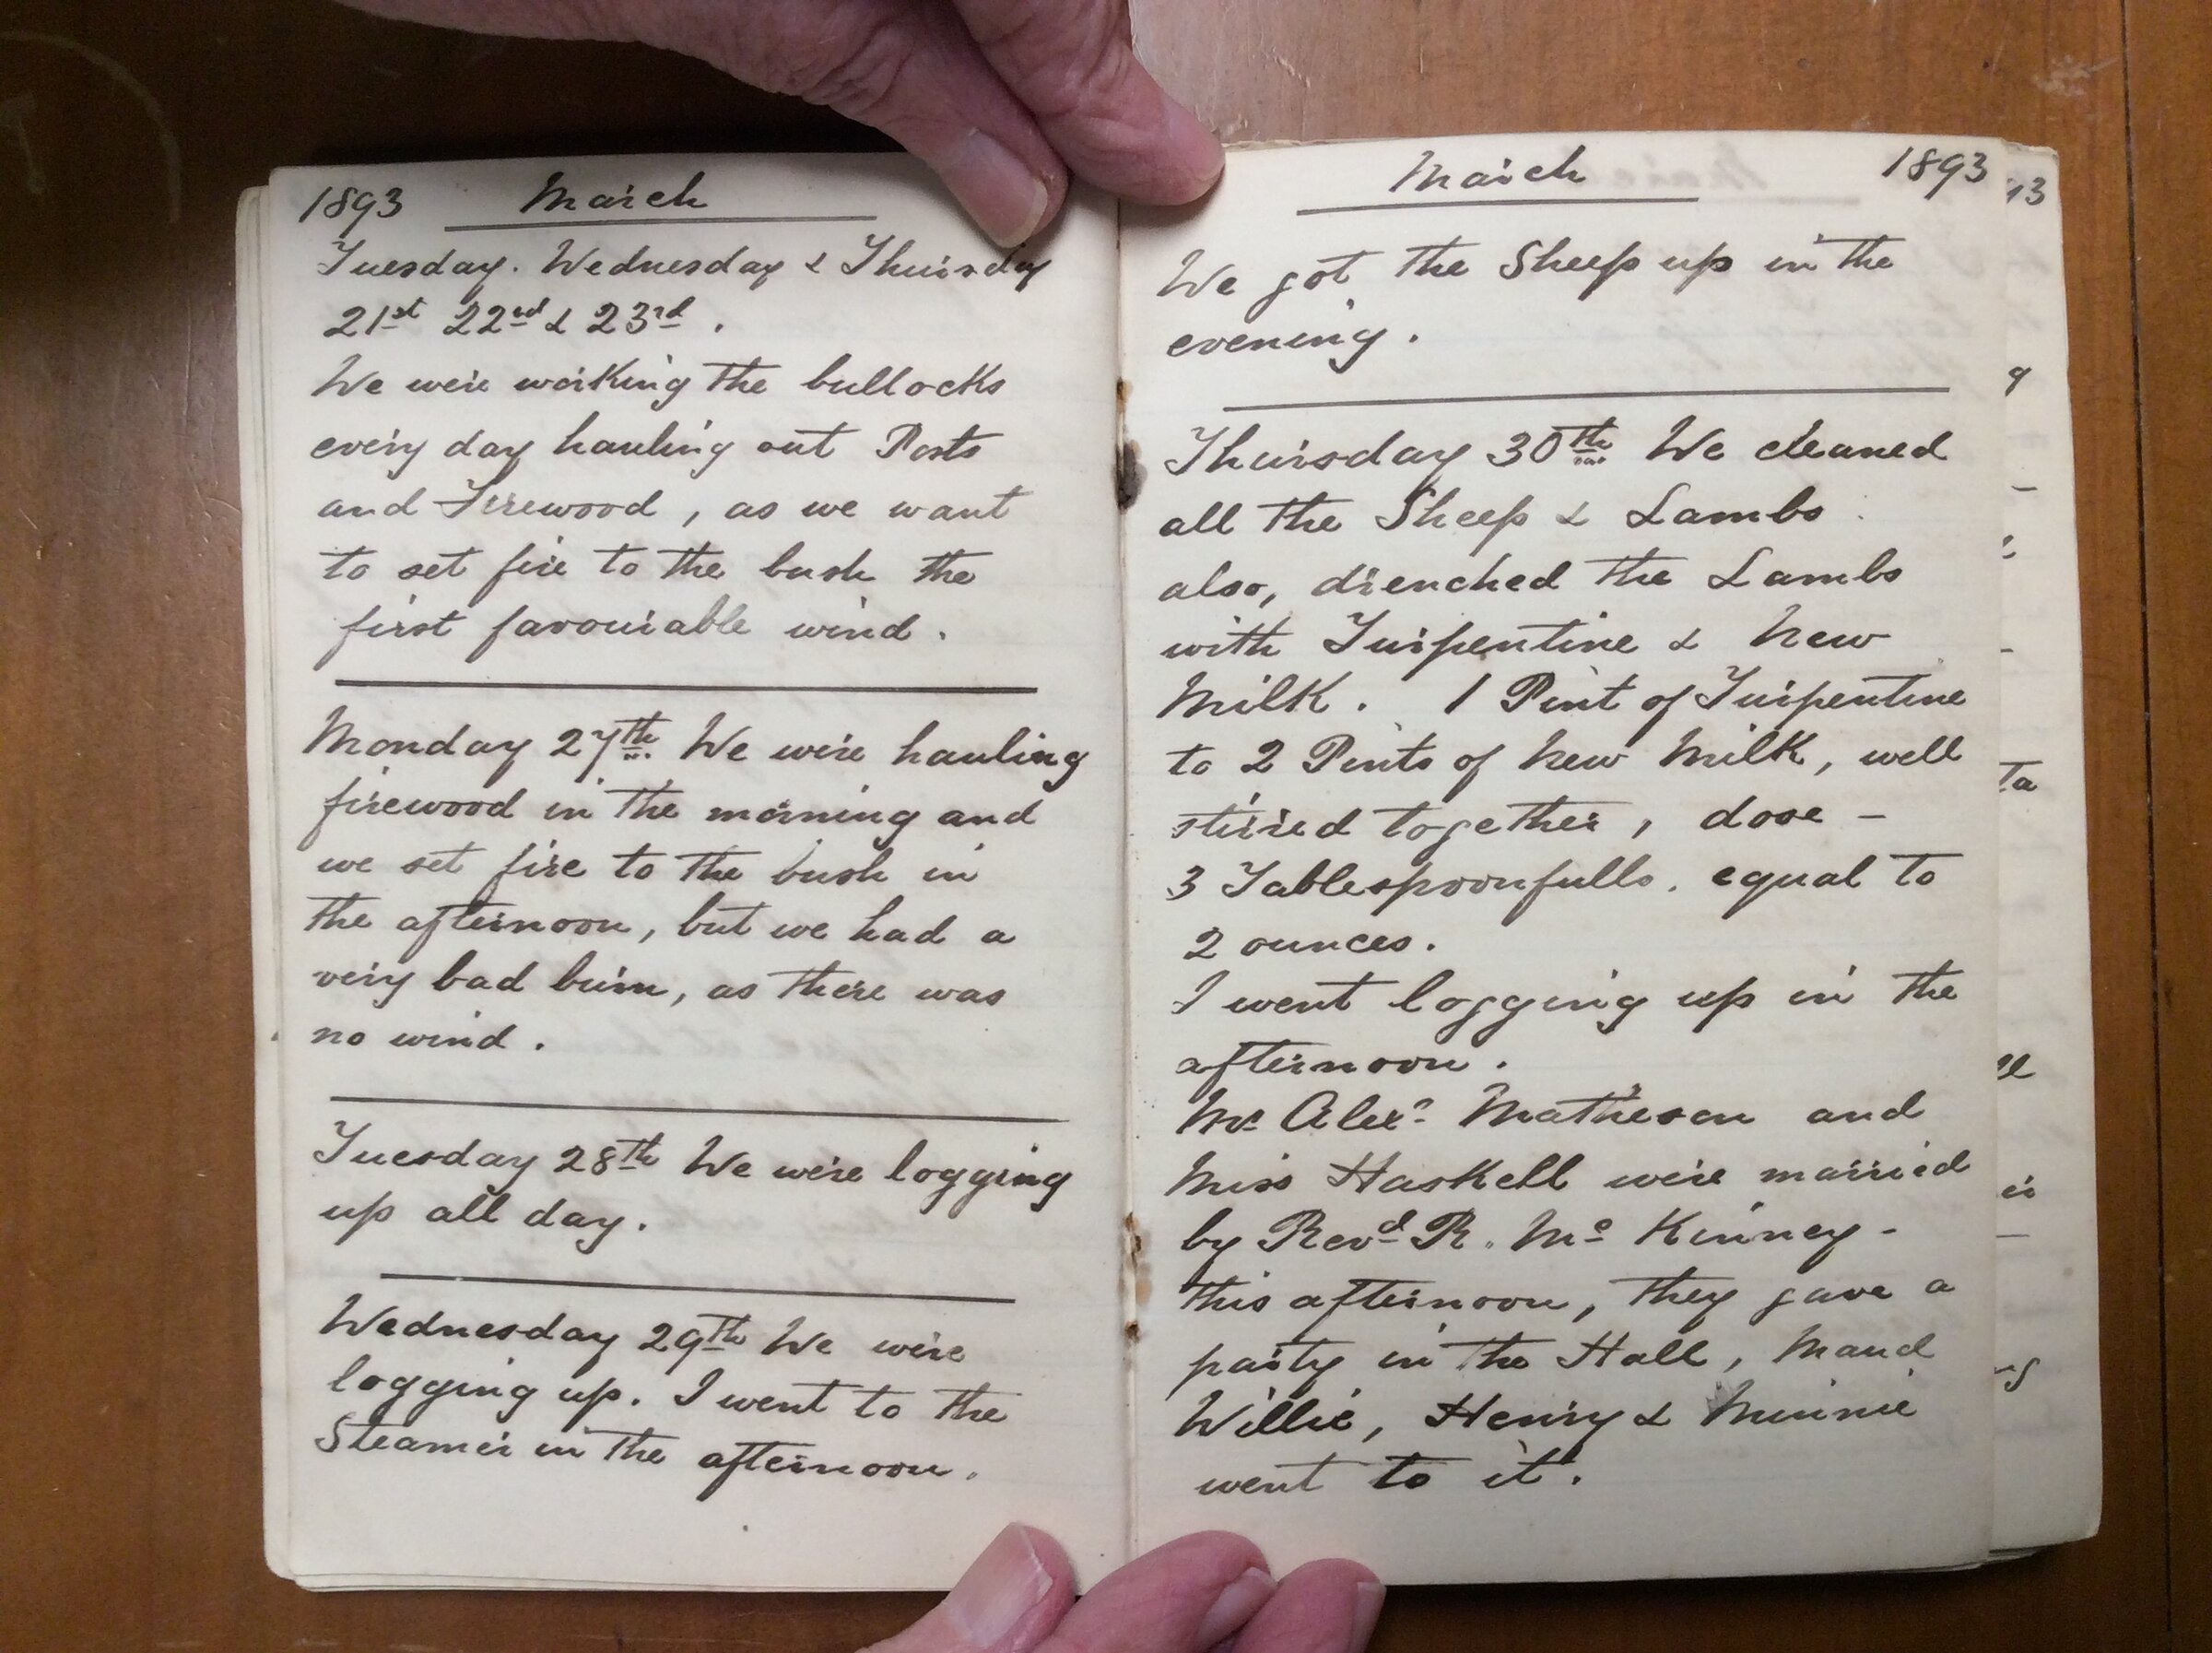 1893 March
Tuesday. Wednesday & Thursday
21st 22nd & 23rd.
We were working the bullocks
every day hauling out Posts
and Firewood, as we want
to set fire to the bush the
first favourable wind.
Monday 27th. We were hauling
firewood in the morning and
we set fire to the bush in
the afternoon, but we had a
very bad burn, as there was
no wind.
Tuesday 28th We were logging
up all day.
Wednesday 29th We were
logging up. I went to the
Steamer in the afternoon.
March 1893
We got the Sheep up in the
evening.
Thursday 30th We cleaned
all the Sheep & Lambs
also, drenched the Lambs
with Turpentine & New
Milk. 1 Pint of Turpentine
to 2 Pints of New Milk, well
stirred together, dose -
3 Tablespoonfulls. equal to
2 ounces.
I went logging up in the
afternoon.
Mr. Alexr. Matheson and
Miss Haskell were married
by Revd R. Mc Kinney -
this afternoon, they gave a
party in the Hall, Maud
Willie, Henry & Minnie
went to it.